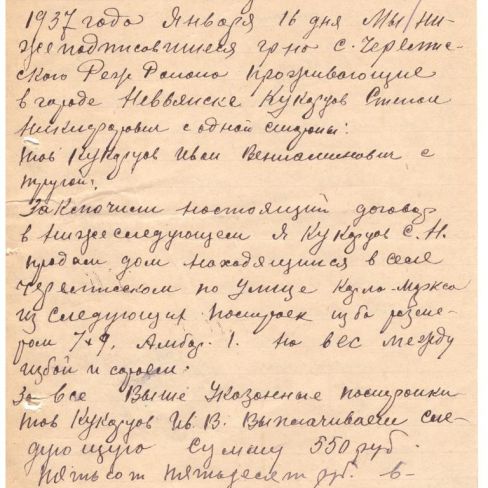 1937 года Января 16 дня Мы/ни-
жеподписовшиеся гр-не с. Черемис-
ского Реж. Района проживающие
в городе Невьянске Кукарцов Степан
Никифорович с одной стороны:
тов Кукарцов Иван Вениаминович с
другой:
Заключили настоящий договор
в нижеследующем Я Кукарцов С. Н.
продал дом находящийся в селе
Черемисском по Улице Карла-Маркса
из следующих построек изба разме-
ром 7х9. Амбар. 1. На вес между
избой и сараем.
За все Выше Указанные постройки
тов Кукарцов Ив. В. Выплачивает сле-
дующую сумму 550 руб.
Пятьсот пятьдесят руб. в-